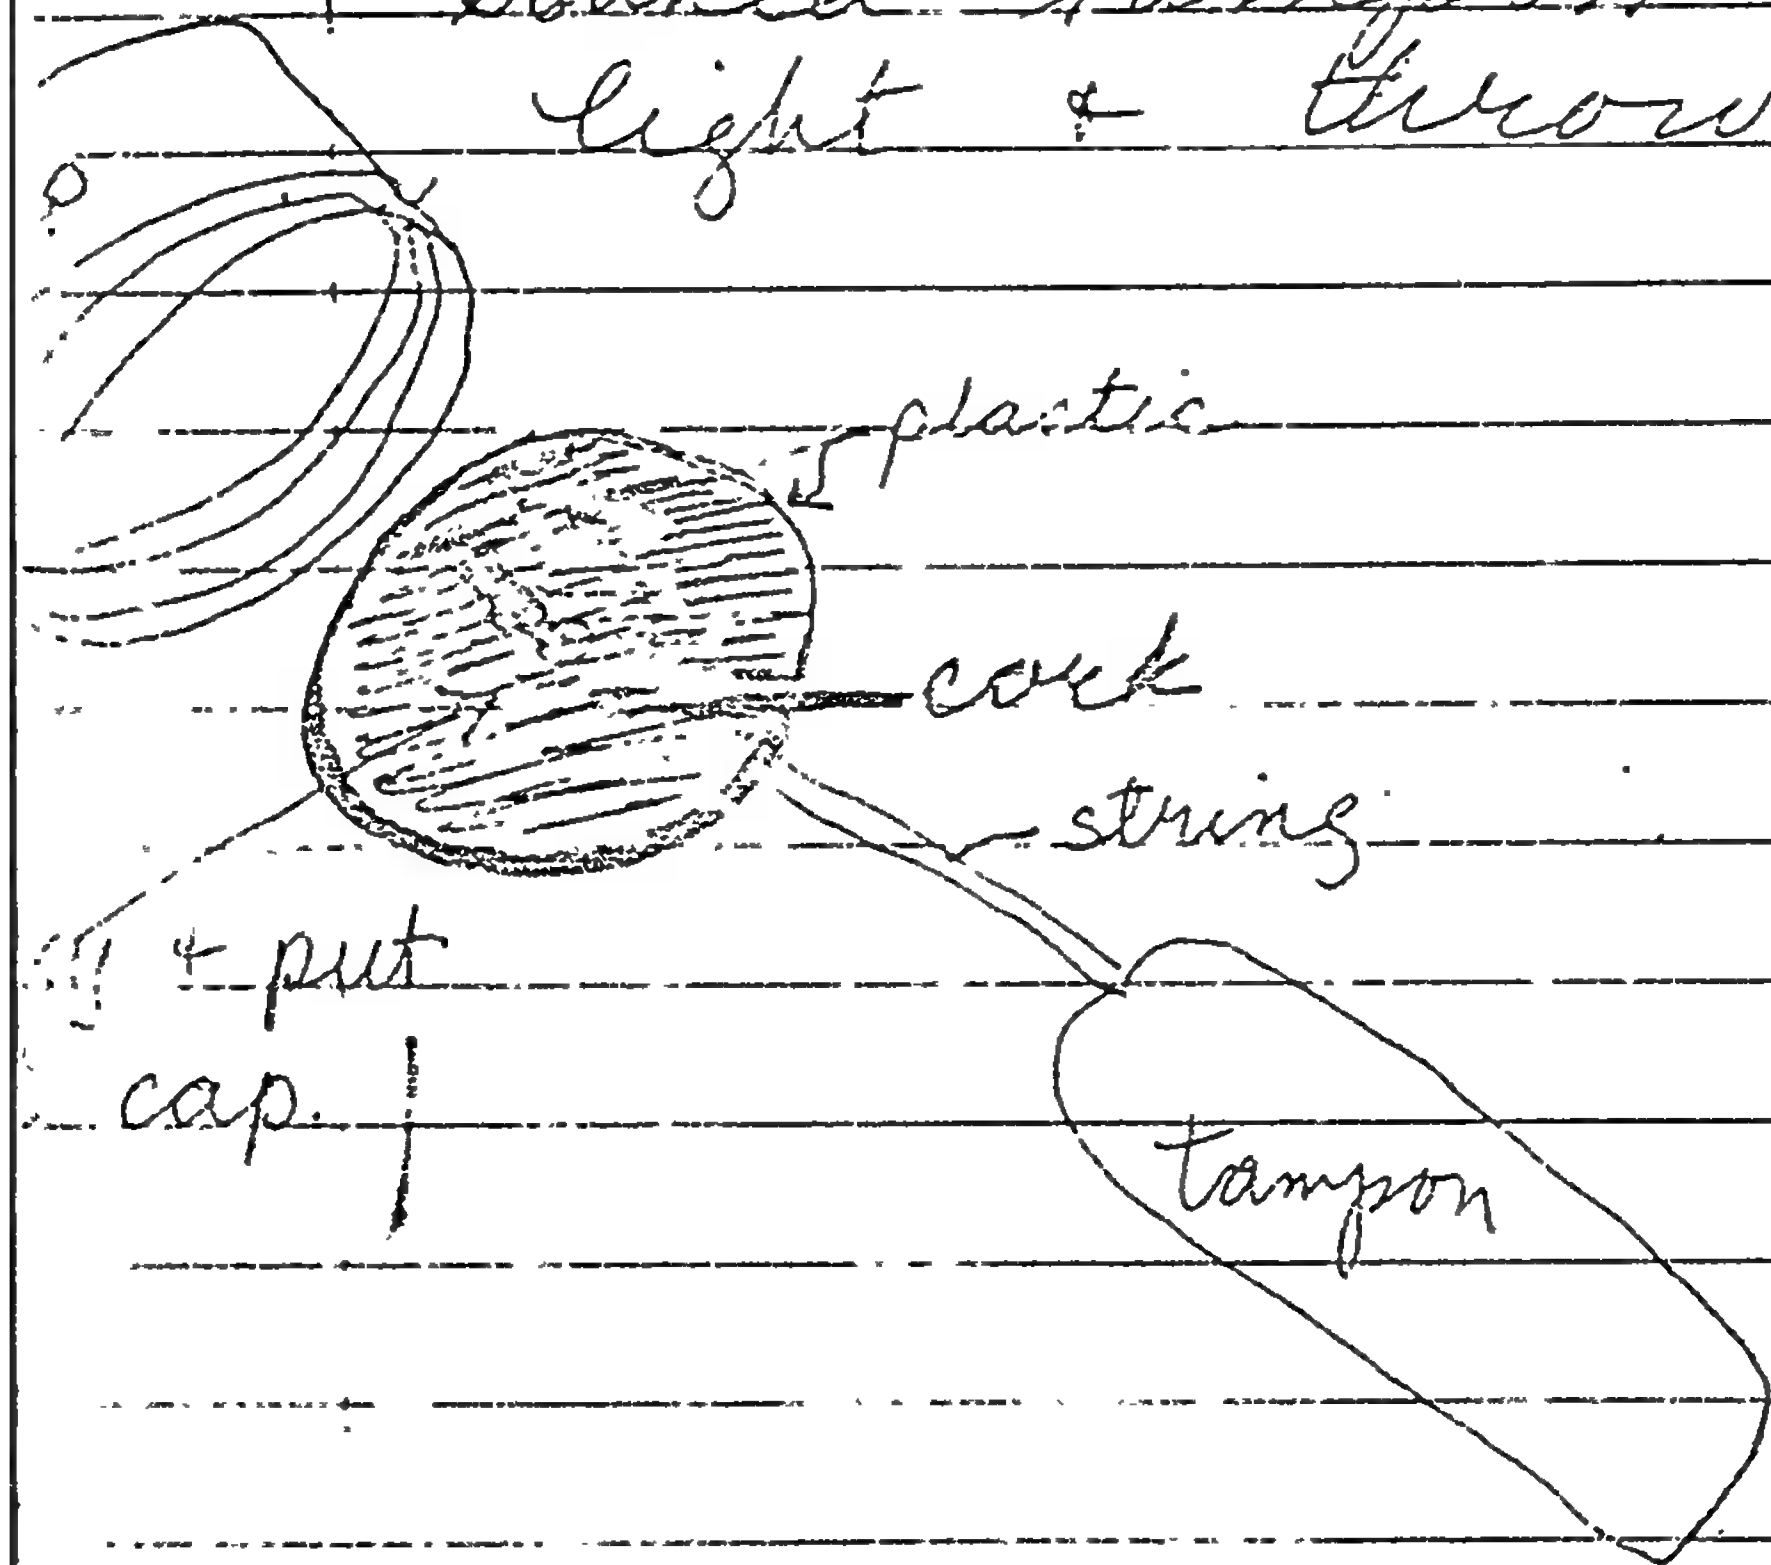 light & throw
plastic
cork
string
& put
cap.
tampon